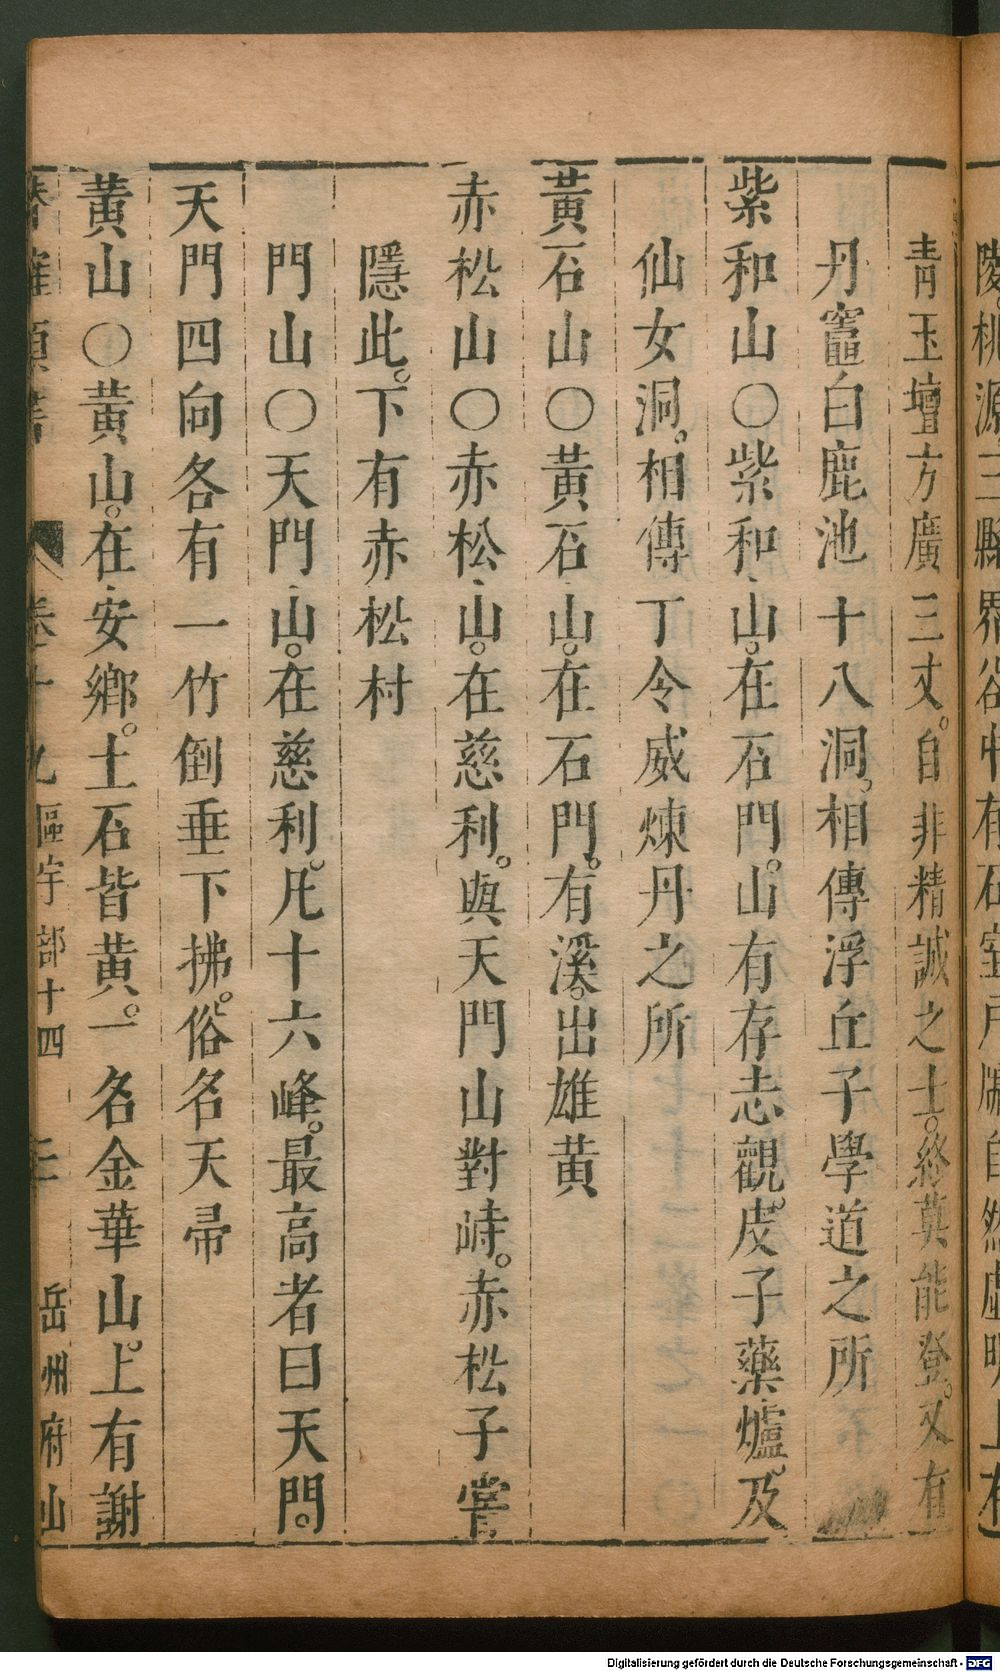 陵桃源三縣界谷中有石室戸牖自然虛明上有
青玉壇方廣三丈。自非精誠之士。終莫能登。又有
丹竈白鹿池十八洞。相傳浮丘子學道之所
紫和山○紫和山。在石門。山有存志觀。皮子藥爐。及
仙女洞。相傳丁令威煉丹之所
黃石山○黃石山。在石門。有溪。出雄黃
赤松山○赤松山。在慈利。與天門山對峙。赤松子嘗
隱此。下有赤松村
門山○天門山。在慈利。凡十六峰。最高者曰天門。
天門四向各有一竹倒垂下拂。俗名天帚
黃山○黃山。在安鄉。土石皆黃。一名金華山。上有謝
卷十九 區宇部十四 岳州府山
Digitalisierung gefördert durch die Deutsche Forschungsgemeinschaft - DFG